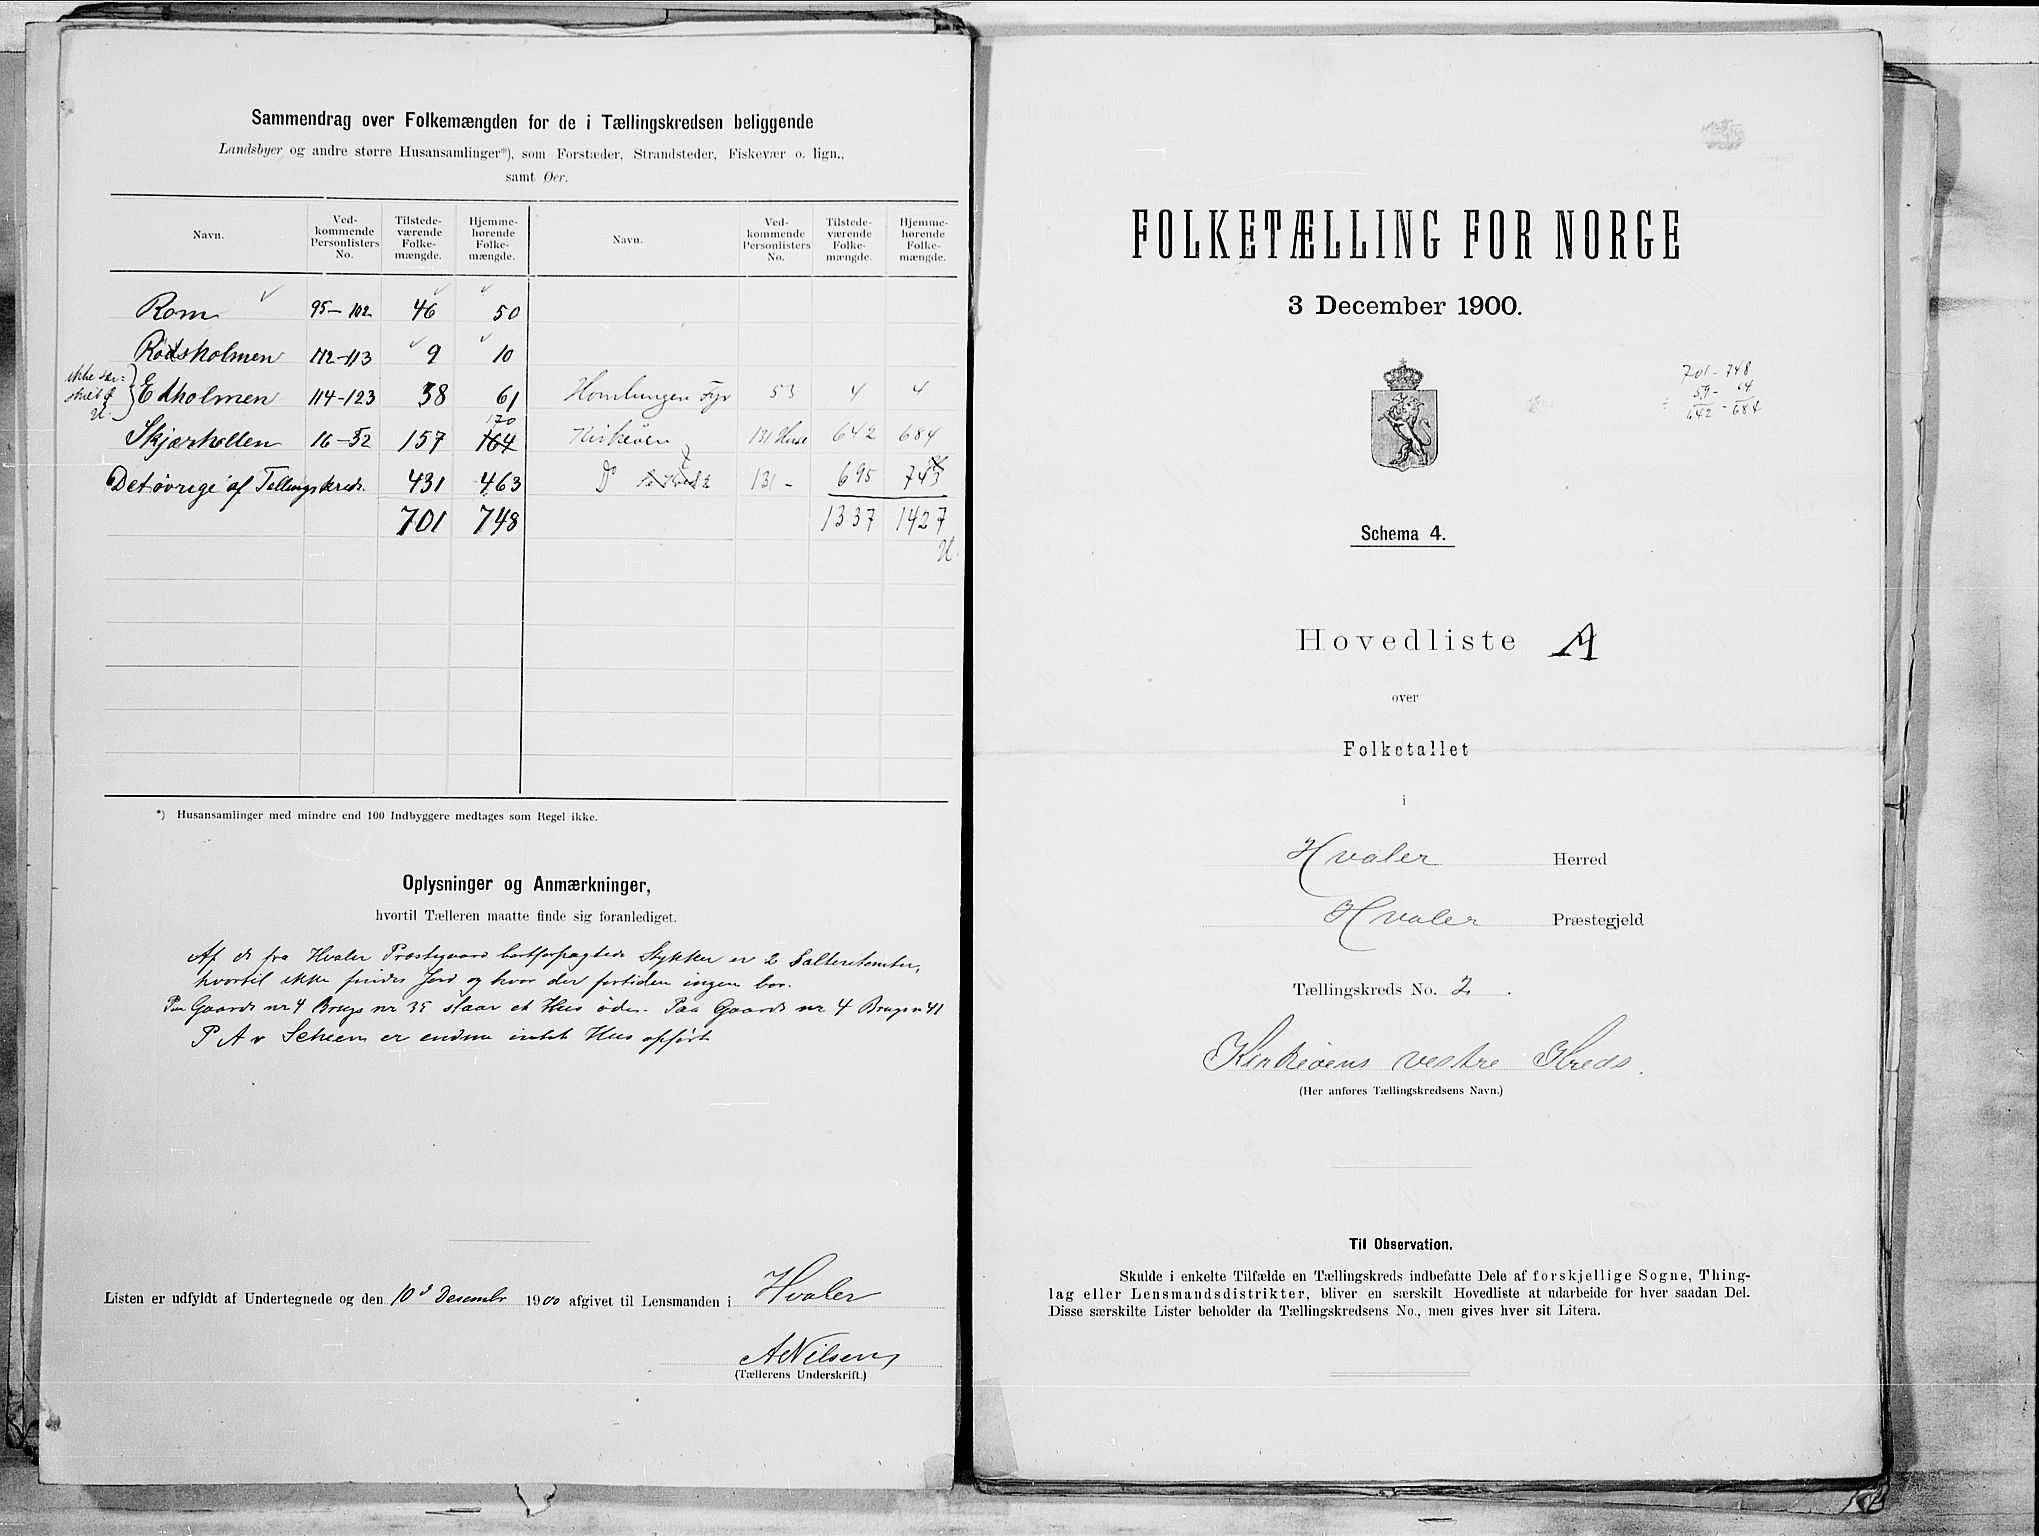 Sammendrag over Folkemængden for de i Tællingskredsen beliggende
Landsbyer og andre større Husansamlinger*), som Forstæder, Strandsteder, Fiskevær o. lign.,
samt Øer.
Navn. Ved-kommende Personlisters No. Tilstede-værende Folke-mængde. Hjemme-hørende Folke-mængde. Navn. Ved-kommende Personlisters No. Tilstede-værende Folke-mængde. Hjemme-hørende Folke-mængde.
Rom 95-102 46 50
Rødsholmen 112-113 9 10
Edholmen 114-123 38 61 Homlungen Fyr 53 4 4
170
Skjærhollen 16-52 157 164 Kirkeøen 131 Huse 642 684
Det øvrige af Tællingskreds. 431 463 Do 131 - 695 743
701 748 1337 1427
*) Husansamlinger med mindre end 100 Indbyggere medtages som Regel ikke.
Oplysninger og Anmærkninger,
hvortil Tælleren maatte finde sig foranlediget.
Af de fra Hvaler Præstegaard bortforpagtede Stykker er 2 Salteritomter,
hvortil ikke findes Jord og hvor der fortiden ingen bor.
Paa Gaards nr 4 Brugs nr 35 staar et Hus øde. Paa Gaards nr 4 Brugs n 41
P A v Scheen er endnu intet Hus opført
Listen er udfyldt af Undertegnede og den 10d Desembr 1900 afgivet til Lensmanden i Hvaler
A Nilsen
(Tællerens Underskrift.)
FOLKETÆLLING FOR NORGE
3 December 1900.
701 - 748
59 - 64
642 - 684
Schema 4.
Hovedliste A
over
Folketallet
i
Hvaler Herred
Hvaler Præstegjeld
Tællingskreds No. 2.
Kirkeøens vestre Kreds.
(Her anføres Tællingskredsens Navn.)
Til Observation.
Skulde i enkelte Tilfælde en Tællingskreds indbefatte Dele af forskjellige Sogne, Thing-
lag eller Lensmandsdistrikter, bliver en særskilt Hovedliste at udarbeide for hver saadan Del.
Disse særskilte Lister beholder da Tællingskredsens No., men gives hver sit Litera.